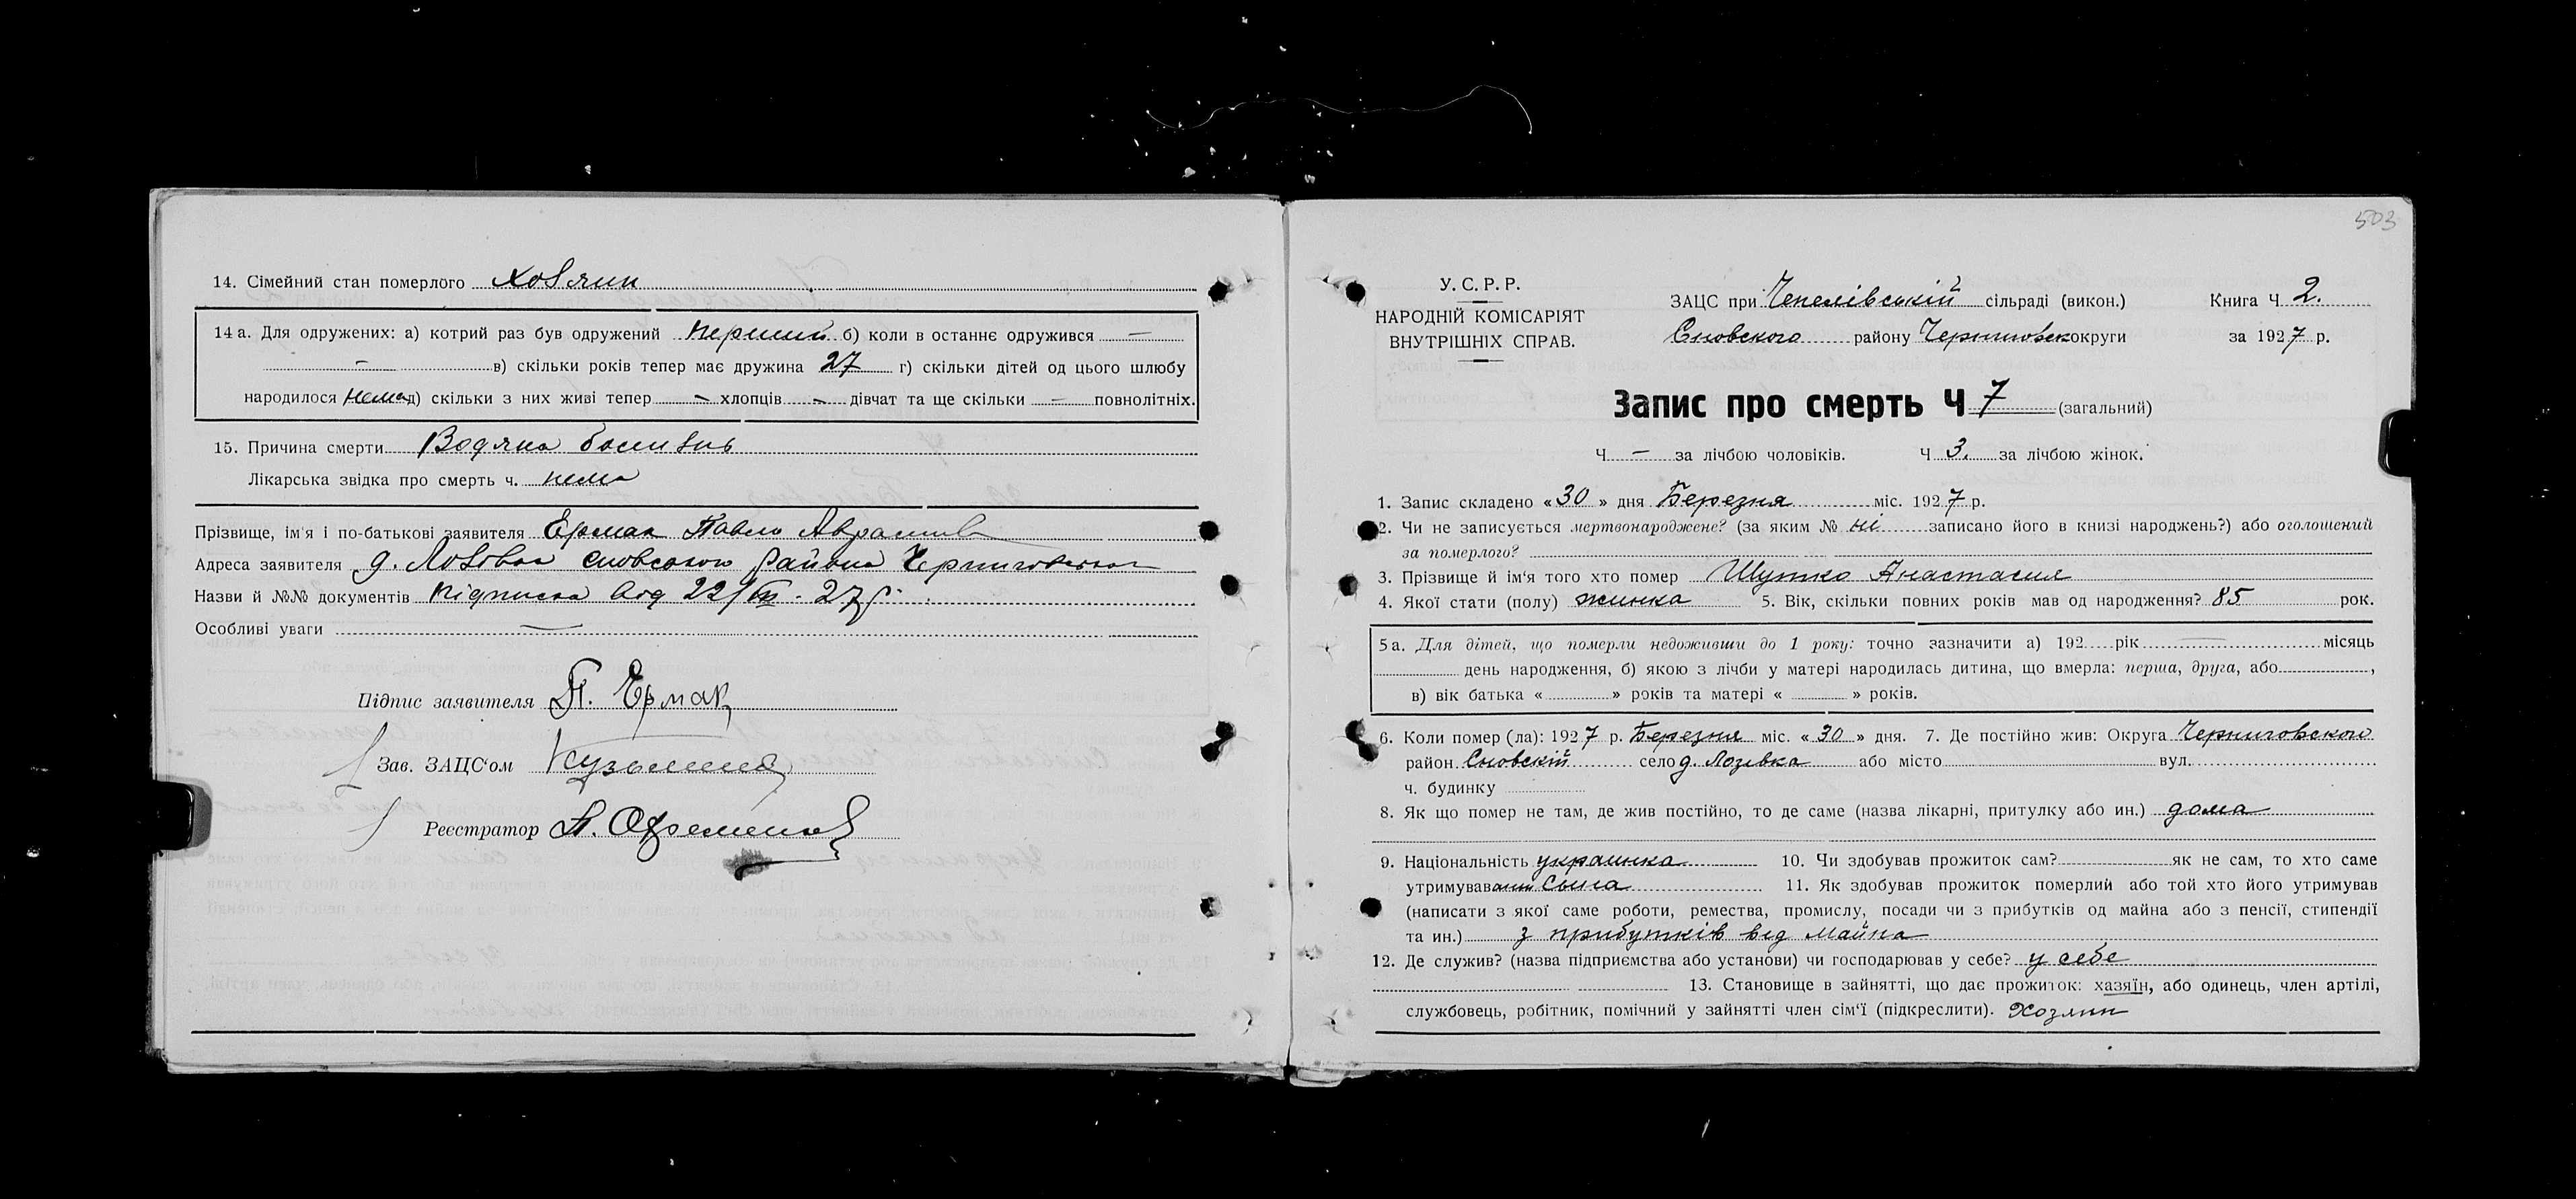 14. Сімейний стан померлого Хозяин
14 а. Для одружених: а) котрий раз був одружений первий б) коли в останнє одружився —
— в) скільки років тепер має дружина 27 г) скільки дітей од цього шлюбу
народилося нема д) скільки з них живі тепер — хлопців — дівчат та ще скільки — повнолітніх.
15. Причина смерти Водяна болизнь
Лікарська звідка про смерть ч. нема
Прізвище, ім'я і по-батькові заявителя Ермак Павло
Адреса заявителя д. Лозовка Сновського району
Назви й №№ документів Підписка вод 22/III - 27 р.
Особливі уваги —
Підпис заявителя П. Ермак
Зав. ЗАЦС'ом
Реєстратор
503
У. С. Р. Р.
НАРОДНІЙ КОМІСАРІЯТ
ВНУТРІШНІХ СПРАВ.
ЗАЦС при Чепелівській сільраді (викон.)
Книга Ч 2.
Сновского району Черниговск округи
за 1927 р.
Запис про смерть Ч 7 (загальний)
Ч — за лічбою чоловіків. Ч 3. за лічбою жінок.
1. Запис складено «30» дня Березня міс. 1927 р.
2. Чи не записується мертвонароджене? (за яким № ні записано його в книзі народжень?) або оголошений
за померлого?
3. Прізвище й ім'я того хто помер Шутко Анастасия
4. Якої стати (полу) жинка 5. Вік, скільки повних років мав од народження? 85 рок.
5 а. Для дітей, що померли недоживши до 1 року: точно зазначити а) 192 рік — місяць
день народження, б) якою з лічби у матері народилась дитина, що вмерла: перша, друга, або ,
в) вік батька « » років та матері « » років.
6. Коли помер (ла): 1927 р. Березня міс. «30» дня. 7. Де постійно жив: Округа Черниговского
район Сновскій село д. Лозівка або місто вул.
ч. будинку
8. Як що помер не там, де жив постійно, то де саме (назва лікарні, притулку або ин.) дома
9. Національність украинка 10. Чи здобував прожиток сам? як не сам, то хто саме
утримував сына 11. Як здобував прожиток померлий або той хто його утримував
(написати з якої саме роботи, ремества, промислу, посади чи з прибутків од майна або з пенсії, стипендії
та ин.) з прибутків від майна
12. Де служив? (назва підприємства або установи) чи господарював у себе? у себе
13. Становище в зайнятті, що дає прожиток: хазяїн, або одинець, член артілі,
службовець, робітник, помічний у зайнятті член сім'ї (підкреслити). Хозяин